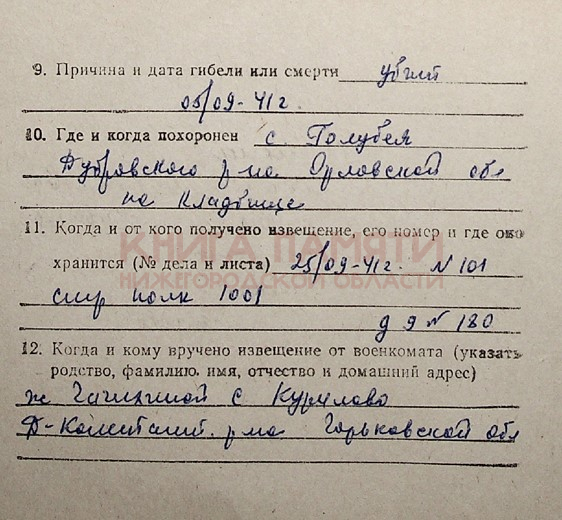 9. Причина и дата гибели или смерти убит
05/09-41г.
10. Где и когда похоронен с. Голубея
Дубровского р-на Орловской обл
на кладбище
11. Когда и от кого получено извещение, его номер и где оно
КНИГА ПАМЯТИ
хранится (№ дела и листа) 25/09-41г. N 101
НИЖЕГОРОДСКОЙ ОБЛАСТИ
стр полк 1001
д 9 N 180
12. Когда и кому вручено извещение от военкомата (указать
родство, фамилию, имя, отчество и домашний адрес)
ж с Курилово
Д-Констант. р-на Горьковской обл